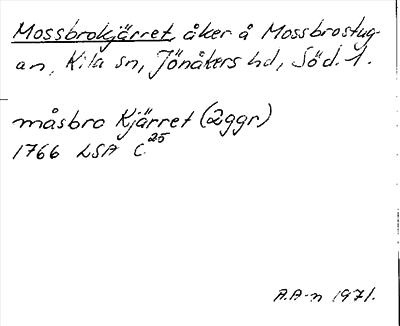 Mossbrokjärret, åker å Mossbrostug-
an, Kila sn, Jönåkers hd, Söd. l.
måsbro Kjärret (2ggr)
1766 LSA C25
A.A-n 1971.